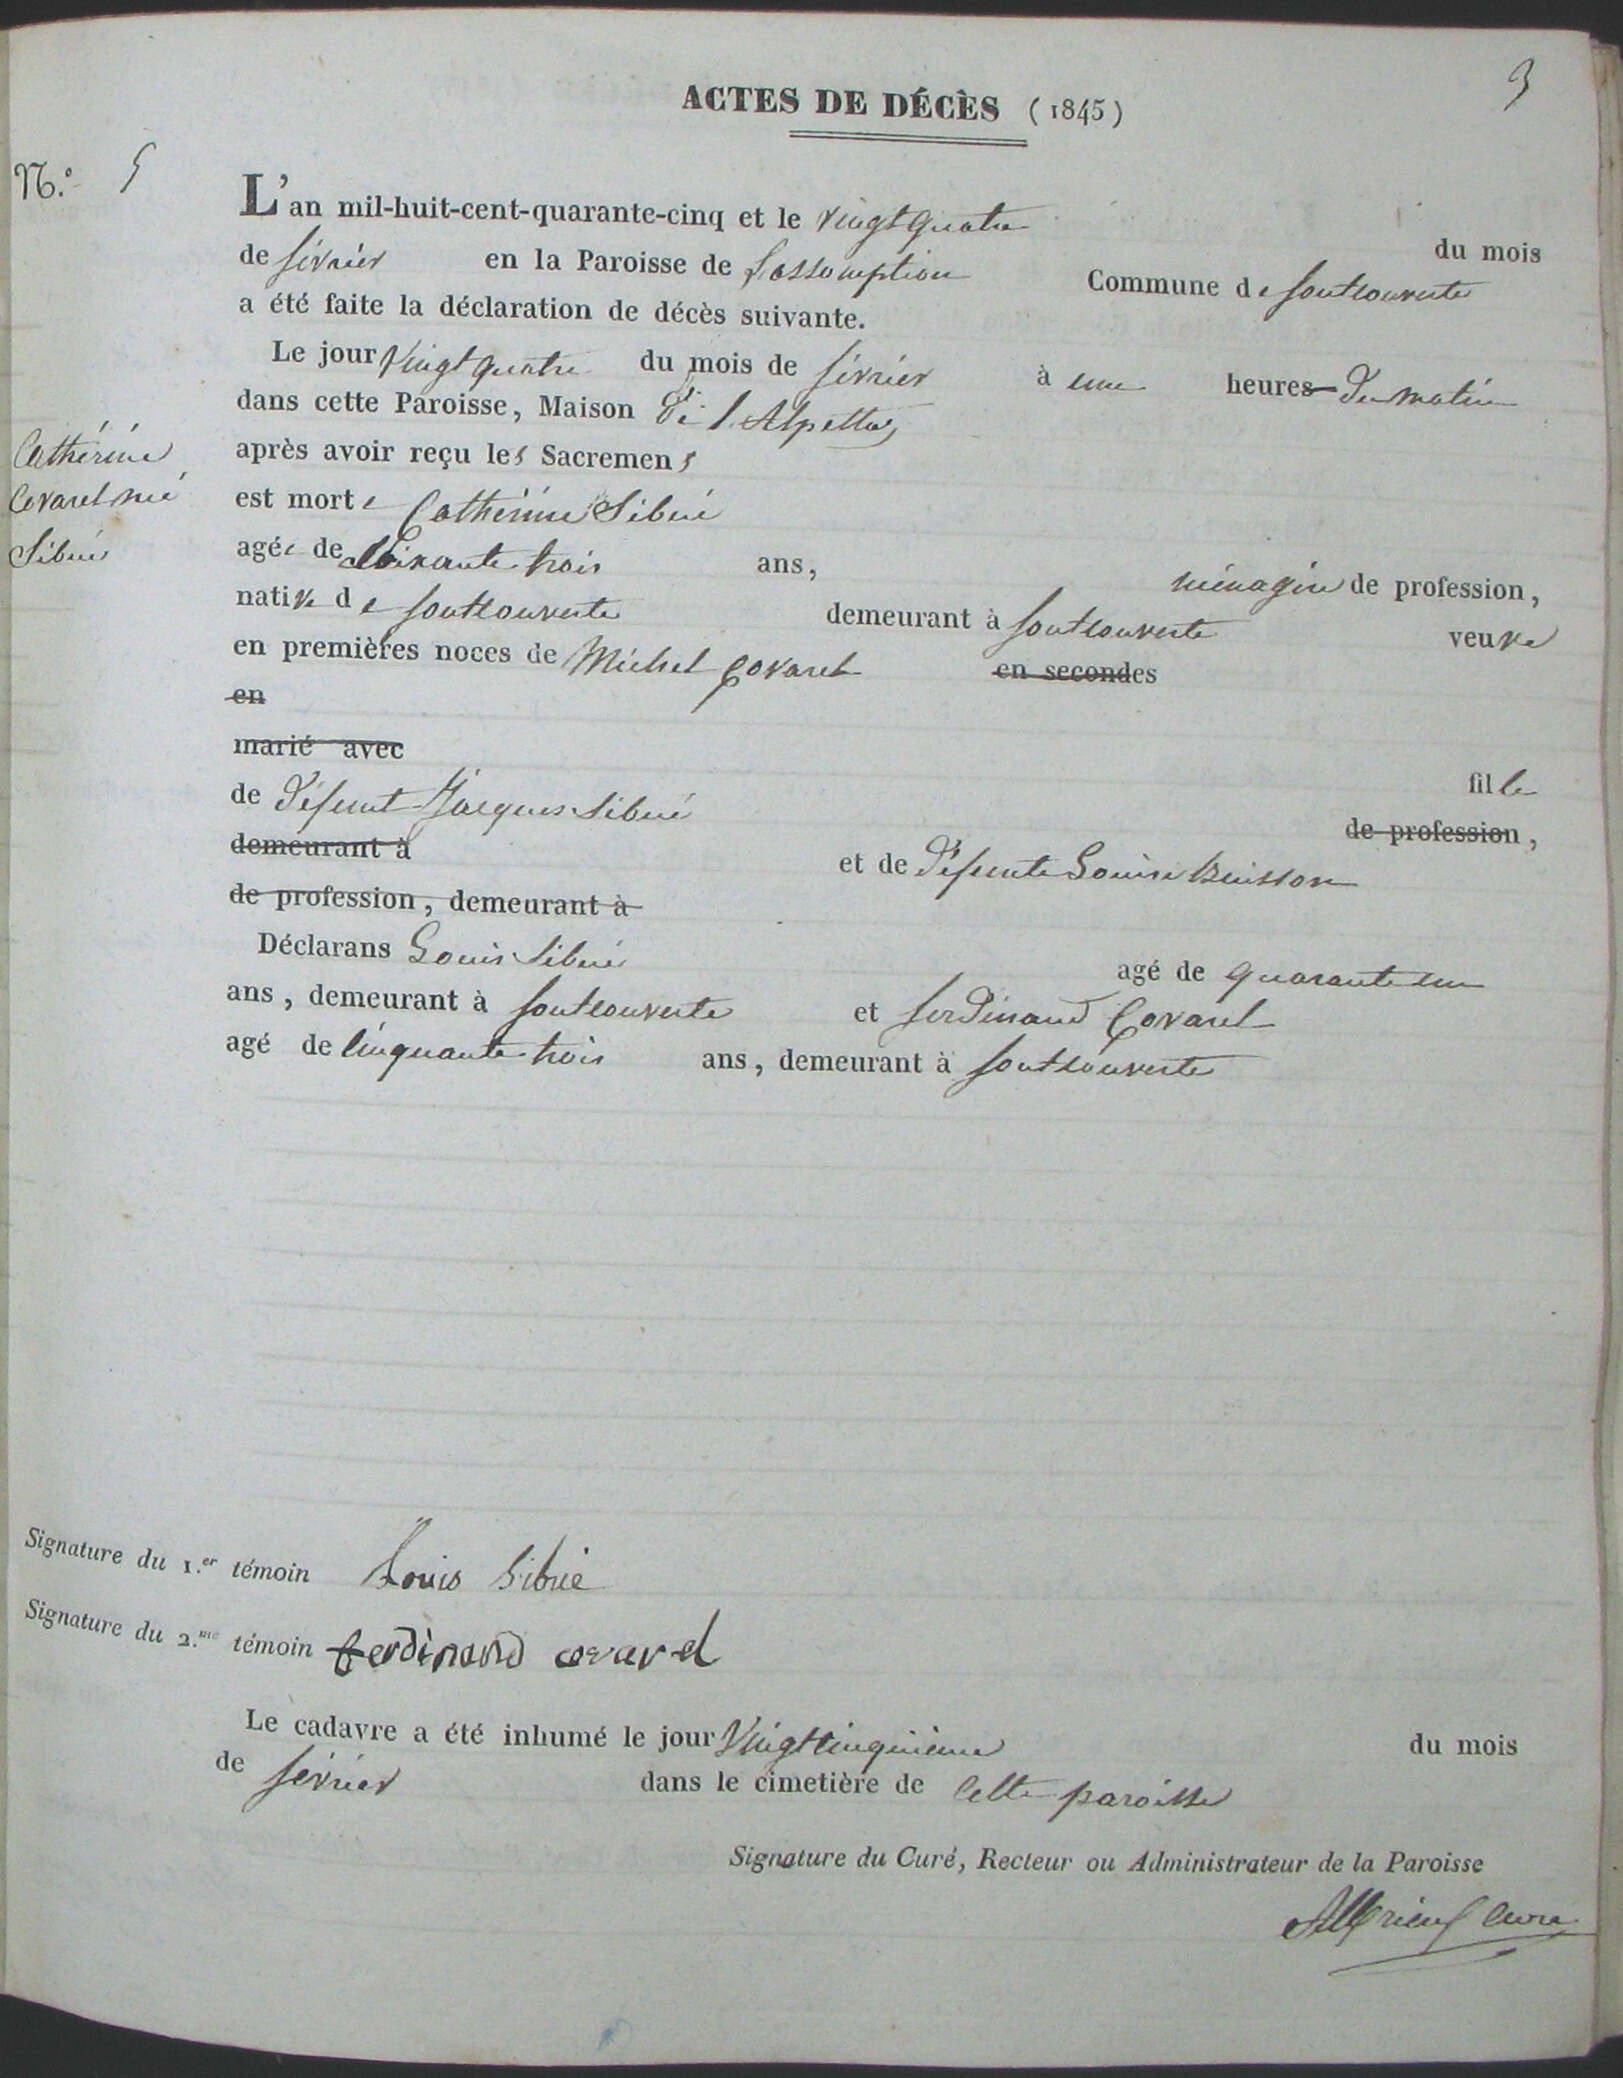 ACTES DE DÉCÈS (1845)
3
N.° 5
L'an mil-huit-cent-quarante-cinq et le vingt quatre du mois
de février en la Paroisse de l'assomption Commune de fontcouverte
a été faite la déclaration de décès suivante.
Le jour Vingt quatre du mois de février à une heures du matin
dans cette Paroisse, Maison de l'Alpettaz
après avoir reçu les Sacremens
est morte Cathérine Sibué
agée de Soixante trois ans, ménagère de profession,
native de fontcouverte demeurant à fontcouverte veuve
en premières noces de Michel Covarel en secondes
en
marié avec
fille
de défunt Jacques Sibué de profession,
demeurant à et de défunte Louise Buisson
de profession, demeurant à
Déclarans Louis Sibué agé de quarante un
ans, demeurant à fontcouverte et ferdinand Covarel
agé de cinquante trois ans, demeurant à fontcouverte
Cathérine
Covarel née
Sibué
Signature du 1.er témoin Louis Sibué
Signature du 2.me témoin ferdinand covarel
Le cadavre a été inhumé le jour Vingt cinquième du mois
de février dans le cimetière de cette paroisse
Signature du Curé, Recteur ou Administrateur de la Paroisse
curé